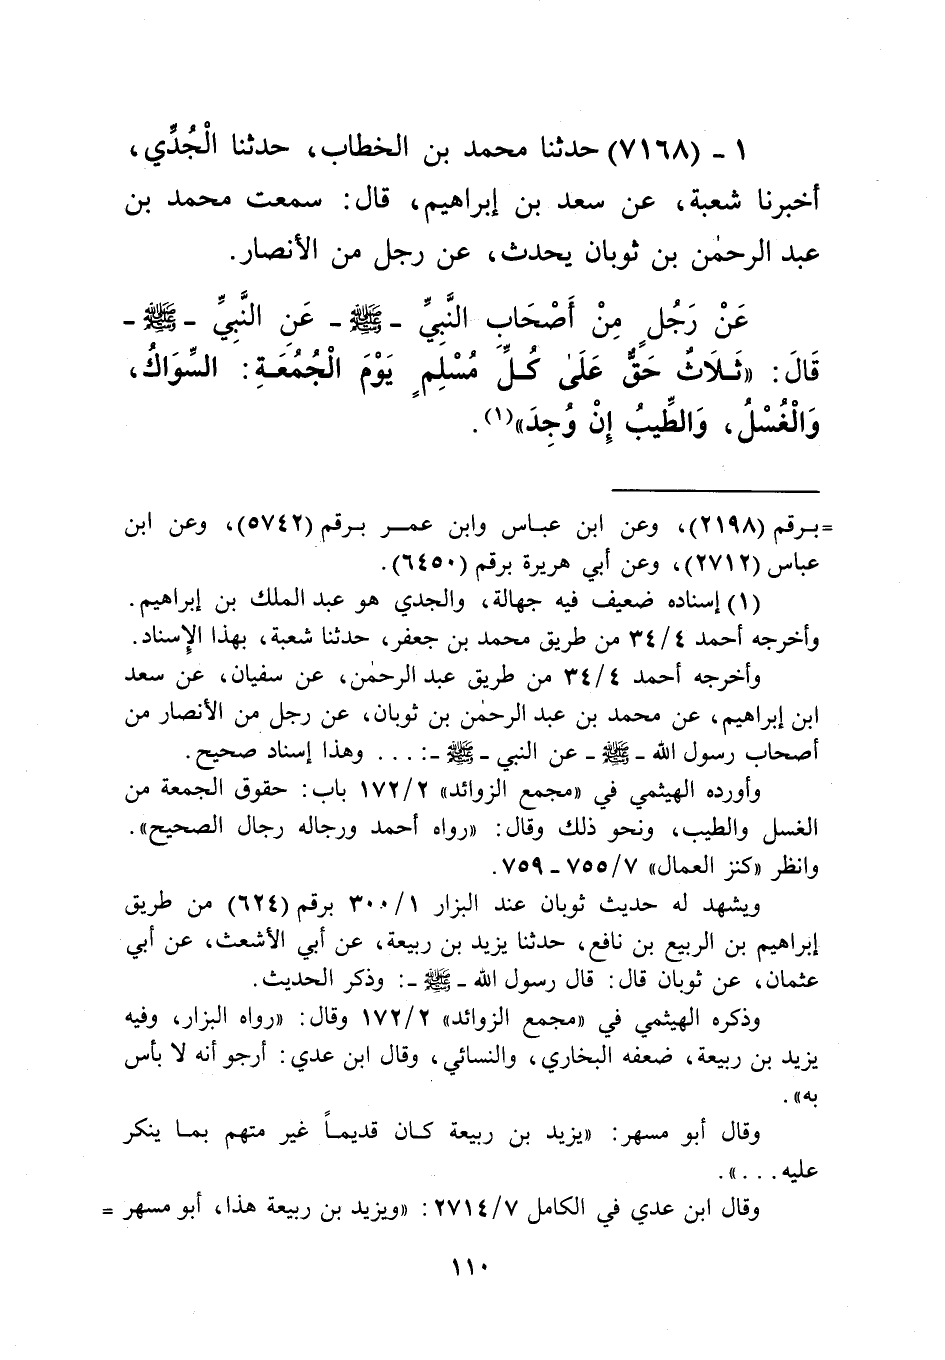 ١ - (٧١٦٨) حدثنا محمد بن الخطاب، حدثنا الْجُدِّي،
أخبرنا شعبة، عن سعد بن إبراهيم، قال: سمعت محمد بن
عبد الرحمٰن بن ثوبان يحدث، عن رجل من الأنصار.
عَنْ رَجُلٍ مِنْ أَصْحَابِ النَّبِيِّ - ﷺ - عَنِ النَّبِيِّ - ﷺ -
قَالَ: «ثَلَاثٌ حَقٌّ عَلَىٰ كُلِّ مُسْلِمٍ يَوْمَ الْجُمُعَةِ: السِّوَاكُ،
وَالْغُسْلُ، وَالطِّيبُ إِنْ وُجِدَ»(١).
=برقم (٢١٩٨)، وعن ابن عباس وابن عمر برقم (٥٧٤٢)، وعن ابن
عباس (٢٧١٢)، وعن أبي هريرة برقم (٦٤٥٠).
(١) إسناده ضعيف فيه جهالة، والجدي هو عبد الملك بن إبراهيم.
وأخرجه أحمد ٣٤/٤ من طريق محمد بن جعفر، حدثنا شعبة، بهذا الإسناد.
وأخرجه أحمد ٣٤/٤ من طريق عبد الرحمٰن، عن سفيان، عن سعد
ابن إبراهيم، عن محمد بن عبد الرحمٰن بن ثوبان، عن رجل من الأنصار من
أصحاب رسول الله - ﷺ - عن النبي - ﷺ -: ... وهذا إسناد صحيح.
وأورده الهيثمي في «مجمع الزوائد» ١٧٢/٢ باب: حقوق الجمعة من
الغسل والطيب، ونحو ذلك وقال: «رواه أحمد ورجاله رجال الصحيح».
وانظر «كنز العمال» ٧٥٥/٧ - ٧٥٩.
ويشهد له حديث ثوبان عند البزار ٣٠٠/١ برقم (٦٢٤) من طريق
إبراهيم بن الربيع بن نافع، حدثنا يزيد بن ربيعة، عن أبي الأشعث، عن أبي
عثمان، عن ثوبان قال: قال رسول الله - ﷺ -: وذكر الحديث.
وذكره الهيثمي في «مجمع الزوائد» ١٧٢/٢ وقال: «رواه البزار، وفيه
يزيد بن ربيعة، ضعفه البخاري، والنسائي، وقال ابن عدي: أرجو أنه لا بأس
به».
وقال أبو مسهر: «يزيد بن ربيعة كان قديماً غير متهم بما ينكر
عليه...».
وقال ابن عدي في الكامل ٢٧١٤/٧: «ويزيد بن ربيعة هذا، أبو مسهر =
١١٠